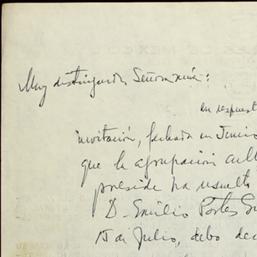 Muy distinguido Señor mío:
en respuest
invitación, fechada en Junio
que la agrupación cult
preside ha resuelto
D. Emilio Portes G
15 de Julio, debo dec